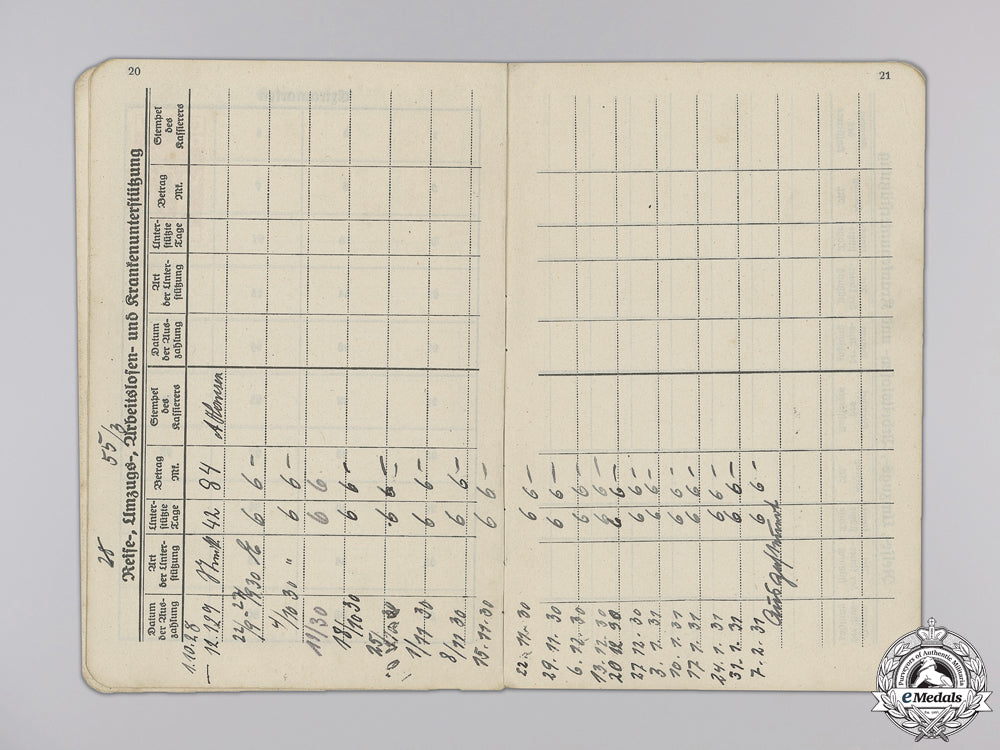 20
28 55/3
Reise-, Umzugs-, Arbeitslosen- und Krankenunterstützung
Datum der Auszahlung
Art der Unterstützung
Unterstützte Tage
Betrag Mk.
Stempel des Kassierers
Datum der Auszahlung
Art der Unterstützung
Unterstützte Tage
Betrag Mk.
Stempel des Kassierers
1.10.28
— 12.1.29 42 84
22/ - 27/9 1930 6 6 —
4/10 30 " 6 6 —
11/30 6 6
18/10 30 6 6 —
25/ 6 6 —
1/11 30 6 6 —
8/11 30 6 6 —
15.11.30 6 6 —
21
22.11.30 6 6 —
29.11.30 6 6 —
6.12.30 6 6 —
13.12.30 6 6 —
20.12.30 6 6 —
27.12.30 6 6 —
3.1.31 6 6 —
10.1.31 6 6 —
17.1.31 6 6 —
24.1.31 6 6 —
31.1.31 6 6 —
7.2.31 6 6 —
Ausgesteuert
Purveyors of Authentic Militaria
eMedals